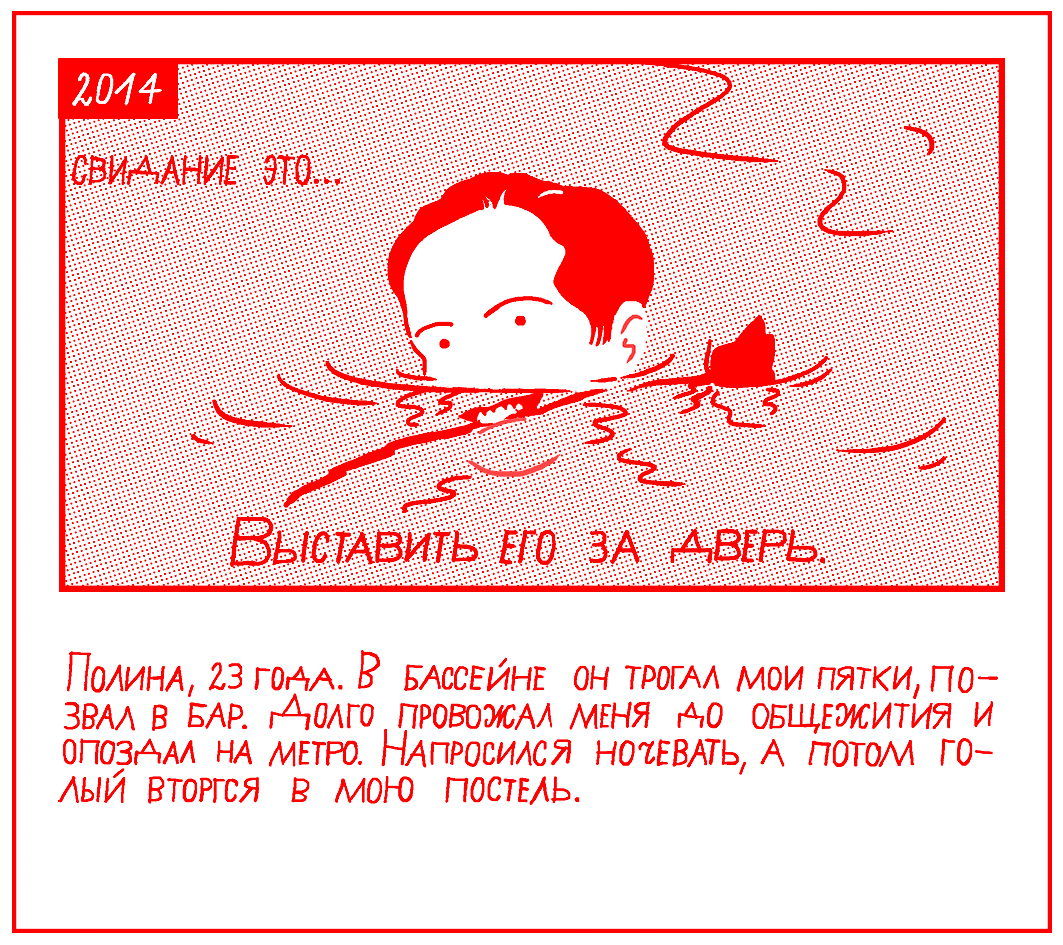 2014
СВИДАНИЕ ЭТО...
ВЫСТАВИТЬ ЕГО ЗА ДВЕРЬ.
ПОЛИНА, 23 ГОДА. В БАССЕЙНЕ ОН ТРОГАЛ МОИ ПЯТКИ, ПО-
ЗВАЛ В БАР. ДОЛГО ПРОВОЖАЛ МЕНЯ ДО ОБЩЕЖИТИЯ И
ОПОЗДАЛ НА МЕТРО. НАПРОСИЛСЯ НОЧЕВАТЬ, А ПОТОМ ГО-
ЛЫЙ ВТОРГСЯ В МОЮ ПОСТЕЛЬ.